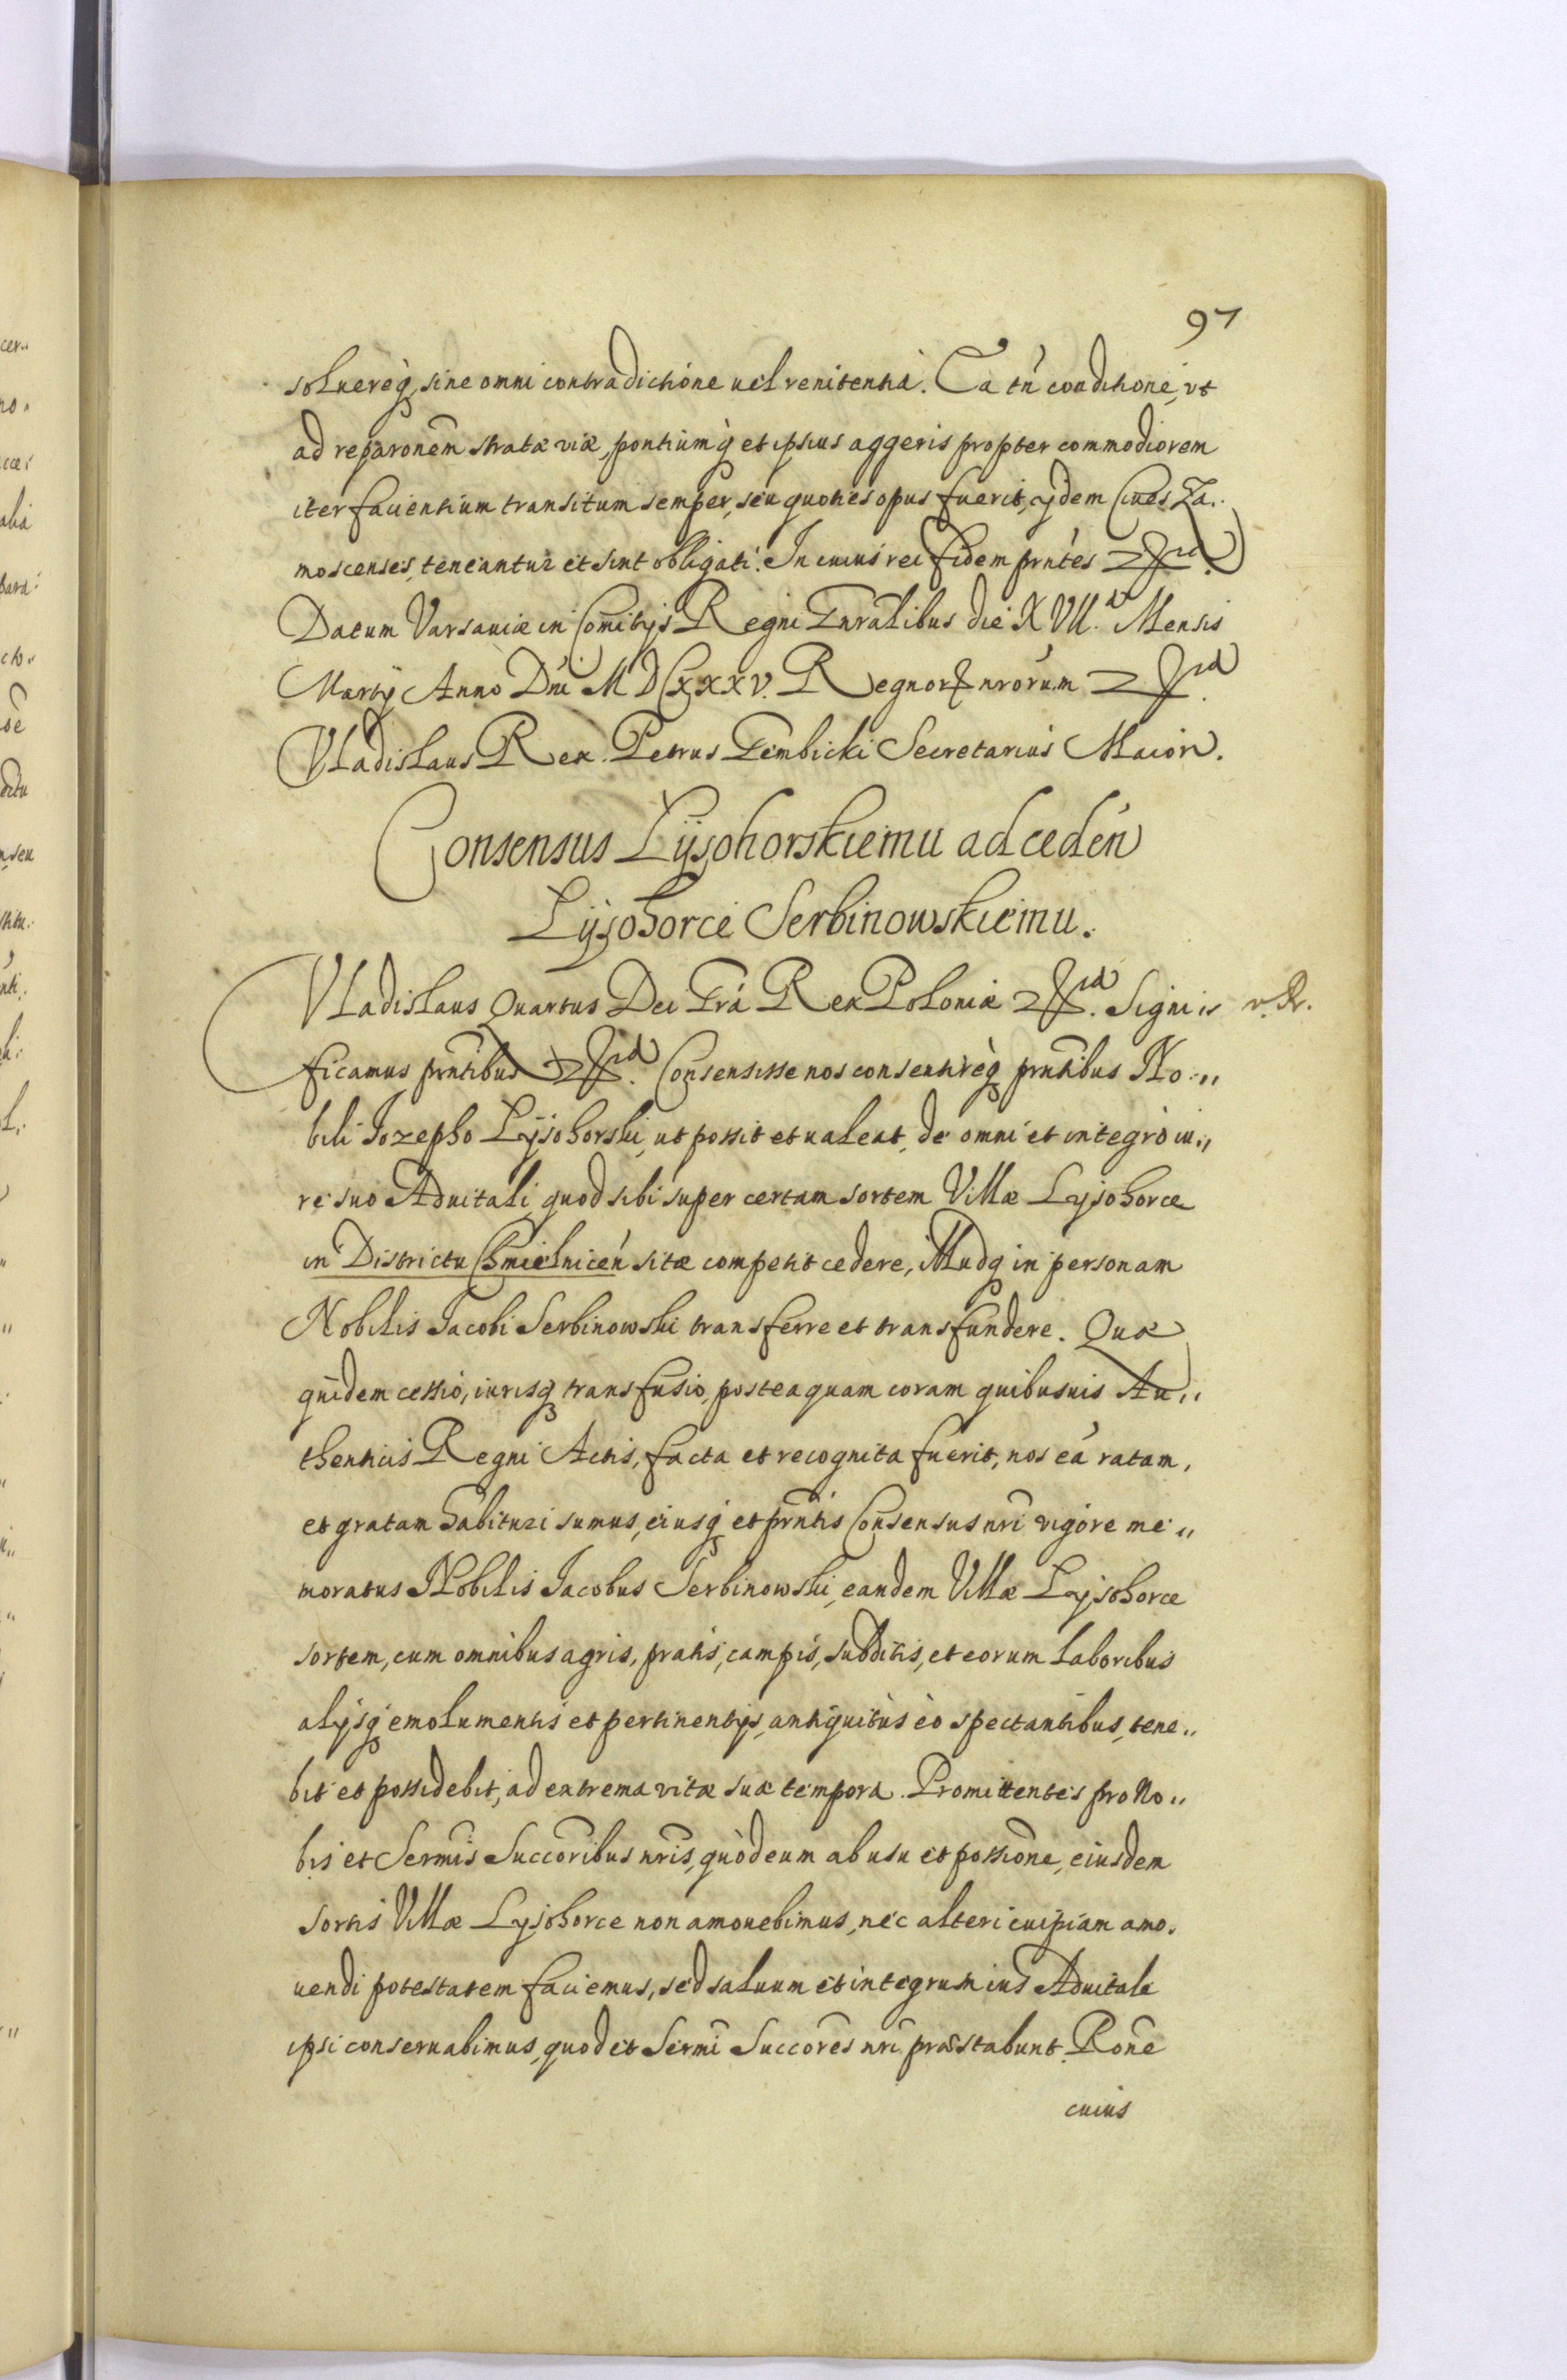 97
soluereq́, sine omni contradictione uel renitentia. Ea tń conditione, vt
ad reparonem stratæ viæ, pontiumq́ et ipsius aggeris propter commodiorem
iter facientium transitum semper, seu quoties opus fuerit, ijdem Ciues Za..
moscenses, teneantur et sint obligati. In cuius rei fidem prntes
Datum Varsauiæ in Comitijs Regni Gnralibus die XVII.a Mensis
Martij Anno Dni MDCXXXV. Regnor nrorum
Vladislaus Rex. Petrus Gembicki Secretarius Maior.
Consensus Lysohorskiemu ad ceden
Lysohorce Serbinowskiemu.
Vladislaus Quartus Dei Gra Rex Poloniæ Signi is v. R.
ficamus prntibus Consensisse nos consentireq́ prntibus No.,,
bili Jozepho Lysohorski, ut possit et ualeat, de omni et integro iu,,
re suo Aduitali, quod sibi super certam sortem Villæ Lysohorce
in Districtu Chmielnicen sitæ competit cedere, illudq́ in personam
Nobilis Jacobi Serbinowski transferre et transfundere. Quæ
quidem cessio, iurisq́ transfusio, posteaquam coram quibusuis Au,,
thenticis Regni Actis, facta et recognita fuerit, nos eá ratam,
et gratam habituri sumus, eiusq́ et prntis Consensus nri vigore me,,
moratus Nobilis Jacobus Serbinowski, eandem Villæ Lysohorce
sortem, cum omnibus agris, pratis, campis, subditis, et eorum laboribus
alijsq́ emolumentis et pertinentijs, antiquitùs eò spectantibus, tene,,
bit et possidebit, ad extrema vitæ suæ tempora. Promittentes pro No,,
bis et Sermis Succoribus nris, quòd eum ab usu et possione, eiusdem
sortis Villæ Lysohorce non amouebimus, nec alteri cuipiam amo.
uendi potestatem faciemus, sed saluum et integrum ius Aduitale
ipsi conseruabimus, quod et Sermi Succores nri præstabunt. Rone
cuius